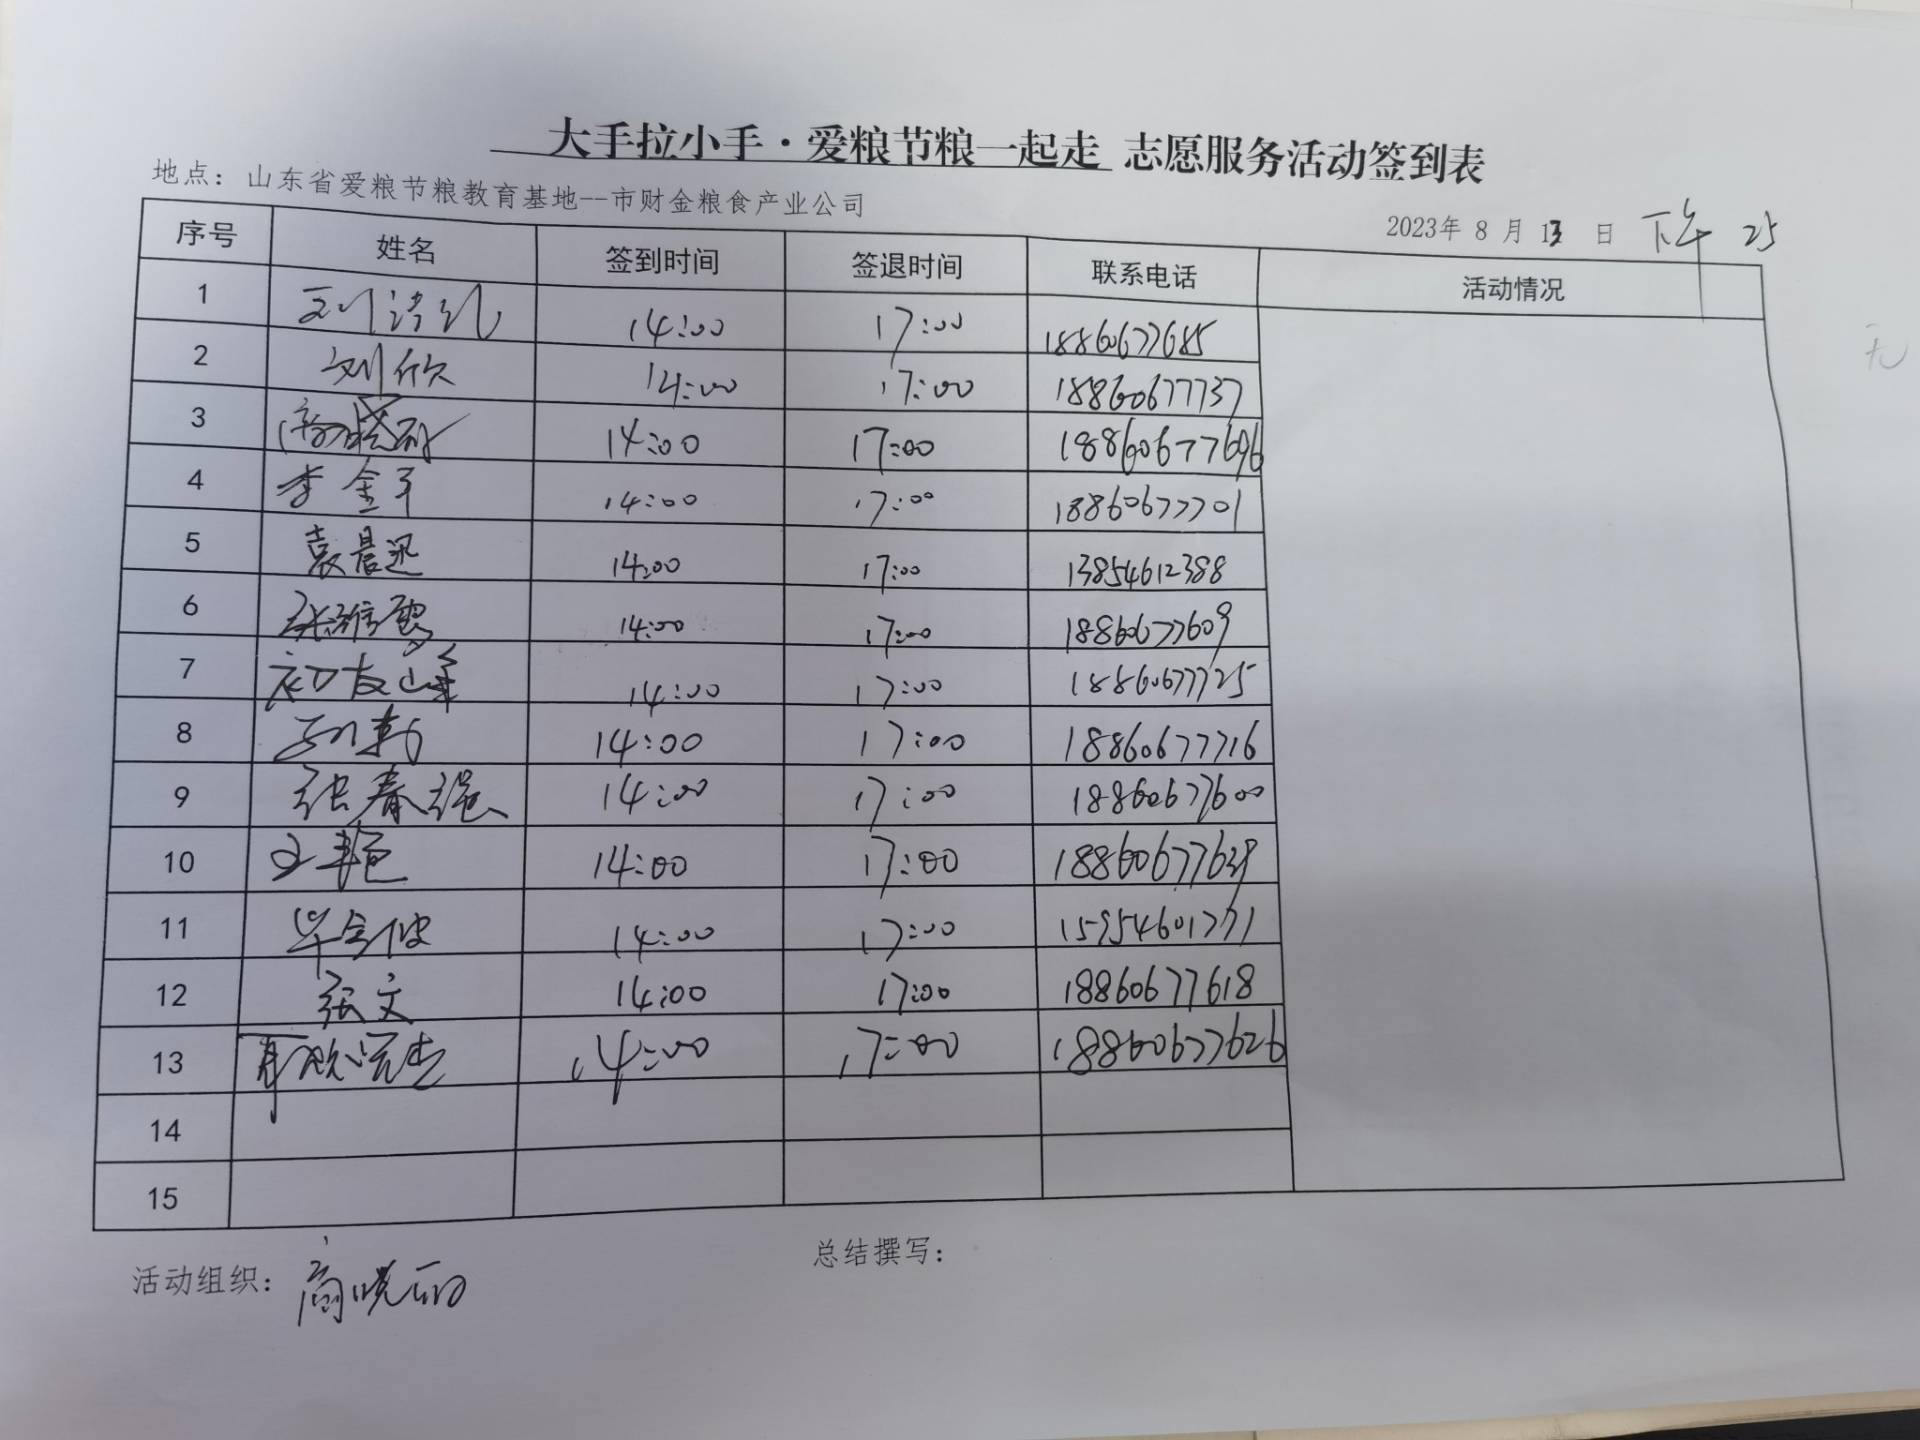 大手拉小手·爱粮节粮一起走 志愿服务活动签到表
地点：山东省爱粮节粮教育基地--市财金粮食产业公司
2023年 8 月 13 日 下午 25
序号 姓名 签到时间 签退时间 联系电话 活动情况
1 14:00 17:00 18860677685
2 刘欣 14:00 17:00 18860677737
3 商晓丽 14:00 17:00 18860677696
4 李金平 14:00 17:00 18860677701
5 袁晨迅 14:00 17:00 13854612388
6 14:00 17:00 18860677609
7 初友山峰 14:00 17:00 18860677725
8 14:00 17:00 18860677716
9 张春强 14:00 17:00 18860677600
10 王艳 14:00 17:00 18860677639
11 毕会俊 14:00 17:00 15954601771
12 张文 14:00 17:00 18860677618
13 14:00 17:00 18860677626
14
15
活动组织：商晓丽
总结撰写：